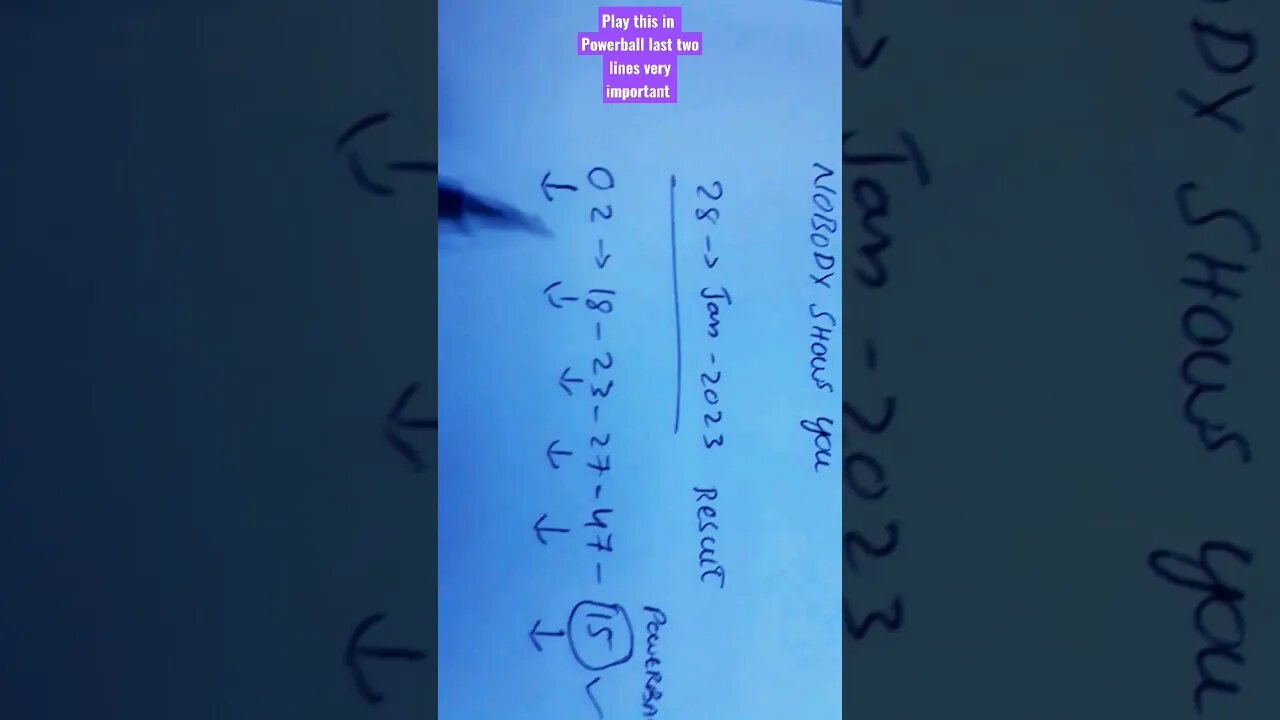 Play this in
Powerball last two
lines very
important
NOBODY SHOWS you
28 → Jan - 2023 Result
02 → 18 - 23 - 27 - 47 - 15
POWERBA